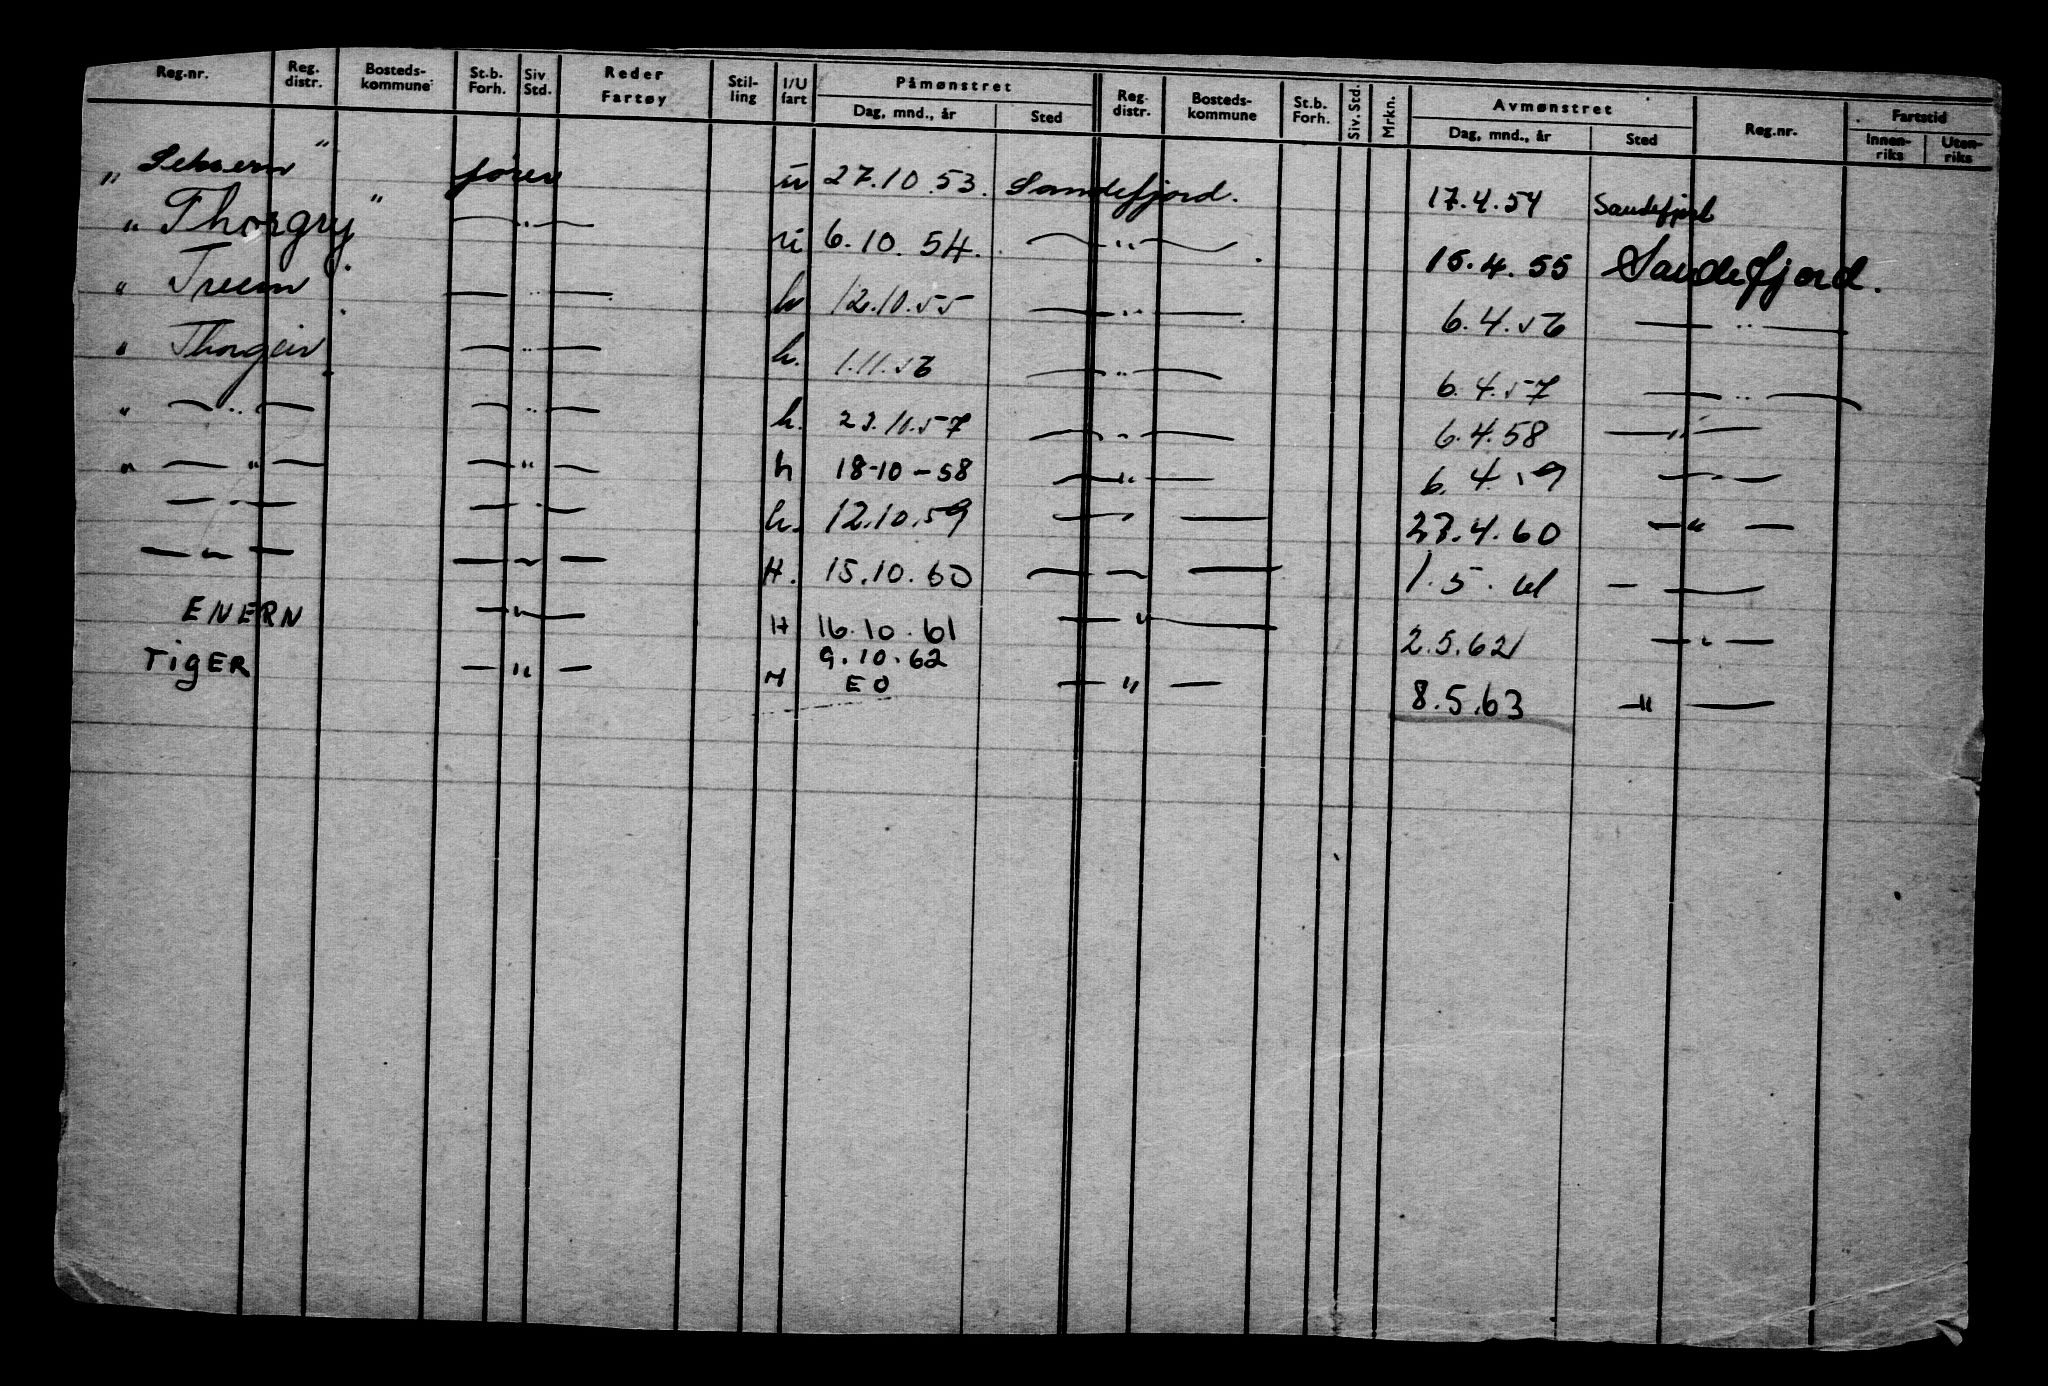 Reg.nr. Reg. distr. Bosteds- kommune St.b. Forh. Siv Std. Reder Fartøy Stil- ling I/U fart Påmønstret Dag, mnd., år Sted Reg. distr. Bosteds- kommune St.b. Forh. Siv. Std. Mrkn. Avmønstret Dag, mnd., år Sted Reg.nr. Fartstid Innen- riks Uten- riks
„ " fører u 27.10.53. Sandefjord. 17.4.54 Sandefjord
" Thorgry " — " — u 6.10.54. — " — . 15.4.55 Sandefjord.
" — " — h 12.10.55 — " — . 6.4.56 — " —
" Thorgeir — " — h. 1.11.56 — " — 6.4.57 — " —
" — " — — " — h. 23.11.57 — " — 6.4.58 — " —
" — " — — " — h 18-10-58 — " — 6.4.59 — " —
— " — — " — h. 12.10.59 — " — 27.4.60 — " —
— " — — " — H. 15.10.60 — " — 1.5.61 — " —
ENERN — " — H 16.10.61 — " — 2.5.62 — " —
TIGER — " — H 9.10.62 — " — 8.5.63 — " —
EO